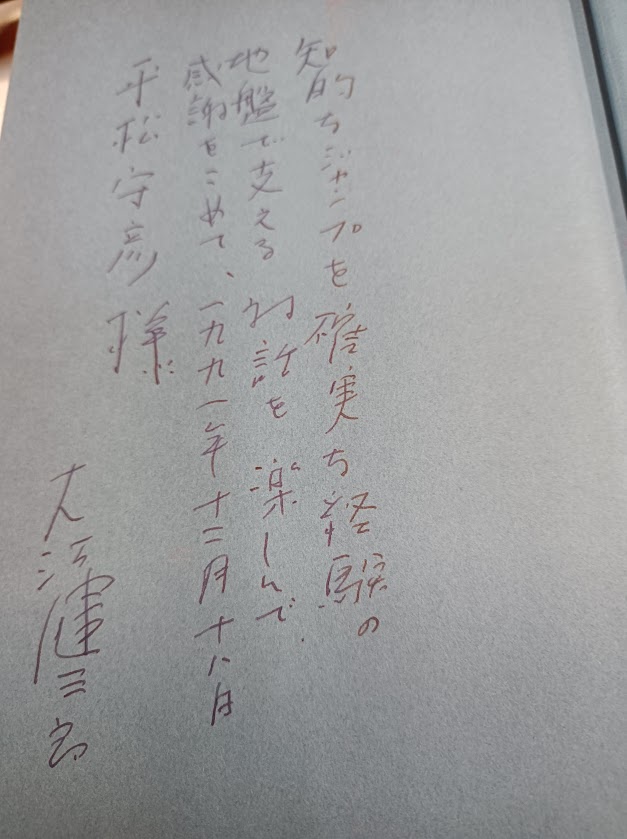 知的なジャンプを確実な経験の
地盤で支える対話を楽しんで
感謝をこめて、一九九一年十二月十八日
平松守彦様
大江健三郎